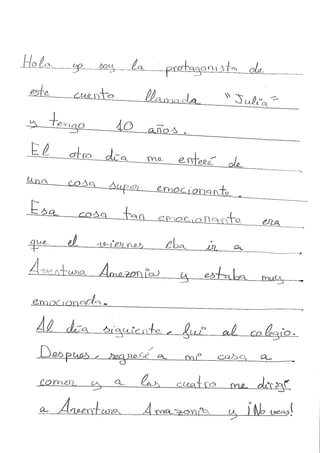 Hola yo soy la protagonista de
este cuento llamada "Julia"
y tengo 10 años.
El otro día me enteré de
una cosa super emocionante.
Esa cosa tan emocionante era
que el viernes iba ir a
Aventura Amazonia y estaba muy
emocionada.
Al día siguiente, fui al colegio.
Despues, regresé a mi casa a
comer y a las cuatro me dirigí
a Aventura Amazonia y ¡No veas!